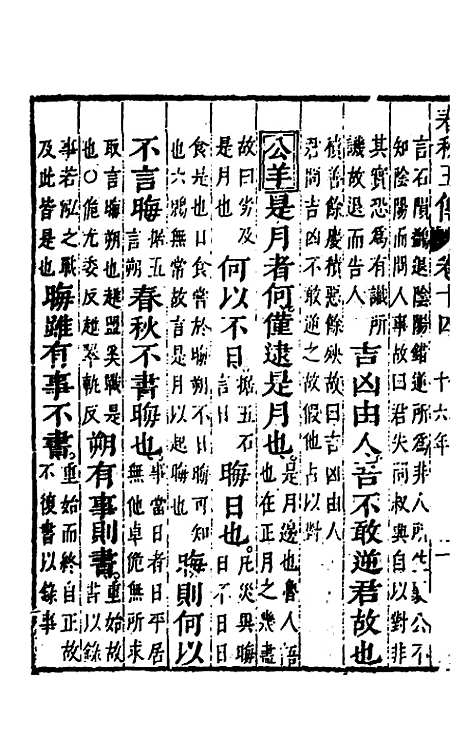 春秋五傳 卷十四 十六年 一
言石隕鷁退陰陽錯逆所為非人所生襄公不
知陰陽而問人事故曰君失問叔興自以對非
其實恐為有識所
譏故退而告人
吉凶由人吾不敢逆君故也
積善餘慶積惡餘殃故曰吉凶由人
君問吉凶不敢逆之故假他占以對
公羊是月者何僅逮是月也
是月邊也魯人語
也在正月之幾盡
故曰劣及
是月也
何以不日
據五石
言日
晦日也
凡災異晦
日不日日
食是也日食嘗於晦朔不日晦可知
也六鷁無常故言是月以起晦也
晦則何以
不言晦
據五石
言朔
春秋不書晦也
事當日者日平居
無他卓佹無所求
取言晦朔也趙盟奚戰是
也○佹尤委反趙翠軌反
朔有事則書
重始故
書以錄
事若泓之戰
及此皆是也
晦雖有事不書
重始而終自正故
不復書以錄事